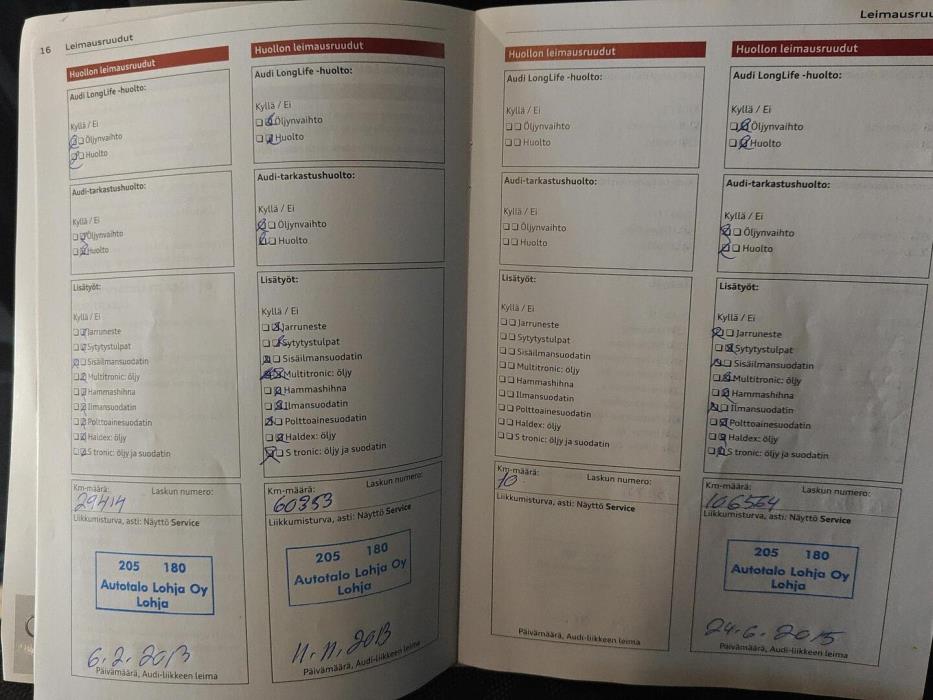 16 Leimausruudut
Huollon leimausruudut
Audi LongLife -huolto:
Kyllä / Ei
Öljynvaihto
Huolto
Audi-tarkastushuolto:
Kyllä / Ei
Öljynvaihto
Huolto
Lisätyöt:
Kyllä / Ei
Jarruneste
Sytytystulpat
Sisäilmansuodatin
Multitronic: öljy
Hammashihna
Ilmansuodatin
Polttoainesuodatin
Haldex: öljy
S tronic: öljy ja suodatin
Km-määrä: Laskun numero:
29414
Liikkumisturva, asti: Näyttö Service
205 180
Autotalo Lohja Oy
Lohja
6.2.2013
Päivämäärä, Audi-liikkeen leima
Huollon leimausruudut
Audi LongLife -huolto:
Kyllä / Ei
Öljynvaihto
Huolto
Audi-tarkastushuolto:
Kyllä / Ei
Öljynvaihto
Huolto
Lisätyöt:
Kyllä / Ei
Jarruneste
Sytytystulpat
Sisäilmansuodatin
Multitronic: öljy
Hammashihna
Ilmansuodatin
Polttoainesuodatin
Haldex: öljy
S tronic: öljy ja suodatin
Km-määrä: Laskun numero:
60353
Liikkumisturva, asti: Näyttö Service
205 180
Autotalo Lohja Oy
Lohja
11.11.2013
Päivämäärä, Audi-liikkeen leima
Huollon leimausruudut
Audi LongLife -huolto:
Kyllä / Ei
Öljynvaihto
Huolto
Audi-tarkastushuolto:
Kyllä / Ei
Öljynvaihto
Huolto
Lisätyöt:
Kyllä / Ei
Jarruneste
Sytytystulpat
Sisäilmansuodatin
Multitronic: öljy
Hammashihna
Ilmansuodatin
Polttoainesuodatin
Haldex: öljy
S tronic: öljy ja suodatin
Km-määrä: Laskun numero:
10
Liikkumisturva, asti: Näyttö Service
Päivämäärä, Audi-liikkeen leima
Leimausruu
Huollon leimausruudut
Audi LongLife -huolto:
Kyllä / Ei
Öljynvaihto
Huolto
Audi-tarkastushuolto:
Kyllä / Ei
Öljynvaihto
Huolto
Lisätyöt:
Kyllä / Ei
Jarruneste
Sytytystulpat
Sisäilmansuodatin
Multitronic: öljy
Hammashihna
Ilmansuodatin
Polttoainesuodatin
Haldex: öljy
S tronic: öljy ja suodatin
Km-määrä: Laskun numero:
106564
Liikkumisturva, asti: Näyttö Service
205 180
Autotalo Lohja Oy
Lohja
24.6.2015
Päivämäärä, Audi-liikkeen leima